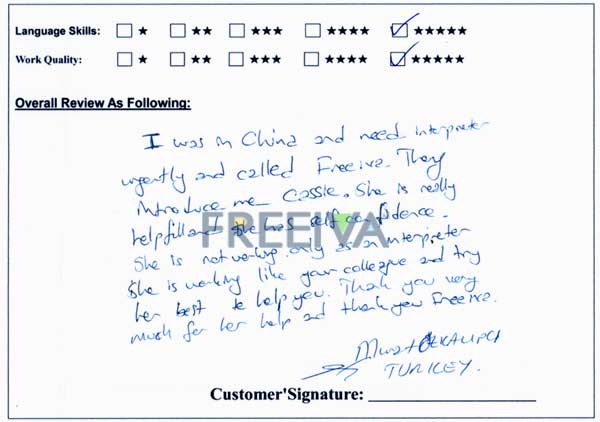 Language Skills: ☐ ★ ☐ ★★ ☐ ★★★ ☐ ★★★★ ☑ ★★★★★
Work Quality: ☐ ★ ☐ ★★ ☐ ★★★ ☐ ★★★★ ☑ ★★★★★
Overall Review As Following:
I was in China and need interpreter
urgently and called Freeiva. They
introduce me Cassie. She is really
helpfill and she has self confidence.
FREEIVA
She is not working only as an interpreter
She is working like your colleague and try
her best to help you. Thank you very
much for her help and thank you Freeiva.
TURKEY.
Customer'Signature: